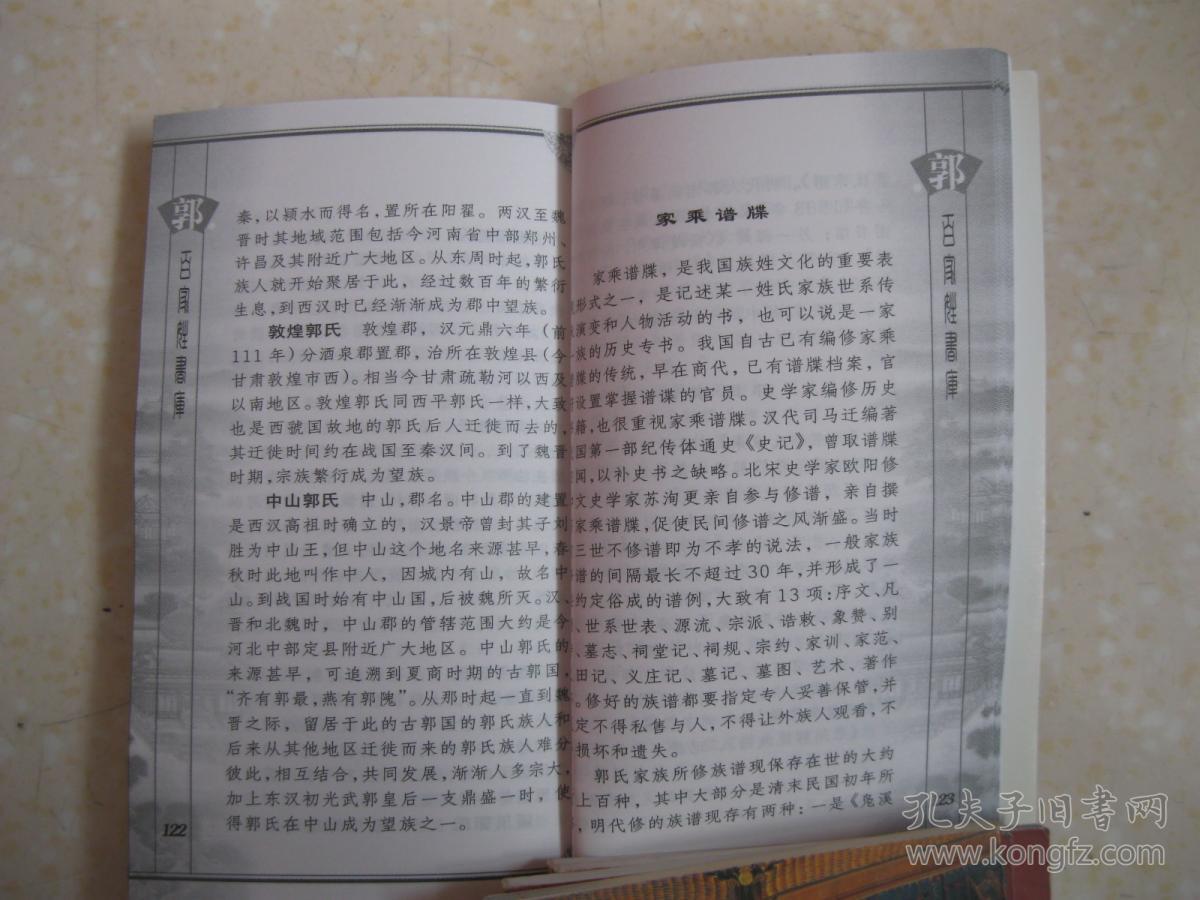 郭
百家姓書庫
秦，以颍水而得名，置所在阳翟。两汉至魏
晋时其地域范围包括今河南省中部郑州、
许昌及其附近广大地区。从东周时起，郭氏
族人就开始聚居于此，经过数百年的繁衍
生息，到西汉时已经渐渐成为郡中望族。
敦煌郭氏 敦煌郡，汉元鼎六年（前
111年）分酒泉郡置郡，治所在敦煌县（今
甘肃敦煌市西）。相当今甘肃疏勒河以西及
以南地区。敦煌郭氏同西平郭氏一样，大致
也是西虢国故地的郭氏后人迁徙而去的，
其迁徙时间约在战国至秦汉间。到了魏晋
时期，宗族繁衍成为望族。
中山郭氏 中山，郡名。中山郡的建置
是西汉高祖时确立的，汉景帝曾封其子刘
胜为中山王，但中山这个地名来源甚早，春
秋时此地叫作中人，因城内有山，故名中
山。到战国时始有中山国，后被魏所灭。汉、
晋和北魏时，中山郡的管辖范围大约是今
河北中部定县附近广大地区。中山郭氏的
来源甚早，可追溯到夏商时期的古郭国，
“齐有郭最，燕有郭隗”。从那时起一直到魏
晋之际，留居于此的古郭国的郭氏族人和
后来从其他地区迁徙而来的郭氏族人难分
彼此，相互结合，共同发展，渐渐人多宗大，
加上东汉初光武郭皇后一支鼎盛一时，使
得郭氏在中山成为望族之一。
122
家乘谱牒
家乘谱牒，是我国族姓文化的重要表
形式之一，是记述某一姓氏家族世系传
演变和人物活动的书，也可以说是一家
族的历史专书。我国自古已有编修家乘
牒的传统，早在商代，已有谱牒档案，官
设置掌握谱谍的官员。史学家编修历史
籍，也很重视家乘谱牒。汉代司马迁编著
国第一部纪传体通史《史记》，曾取谱牒
闻，以补史书之缺略。北宋史学家欧阳修
文史学家苏洵更亲自参与修谱，亲自撰
家乘谱牒，促使民间修谱之风渐盛。当时
三世不修谱即为不孝的说法，一般家族
谱的间隔最长不超过30年，并形成了一
约定俗成的谱例，大致有13项：序文、凡
、世系世表、源流、宗派、诰敕、象赞、别
、墓志、祠堂记、祠规、宗约、家训、家范、
田记、义庄记、墓记、墓图、艺术、著作
。修好的族谱都要指定专人妥善保管，并
定不得私售与人，不得让外族人观看，不
损坏和遗失。
郭氏家族所修族谱现保存在世的大约
上百种，其中大部分是清末民国初年所
，明代修的族谱现存有两种：一是《凫溪
郭
百家姓書庫
23
孔夫子旧书网
www.kongfz.com